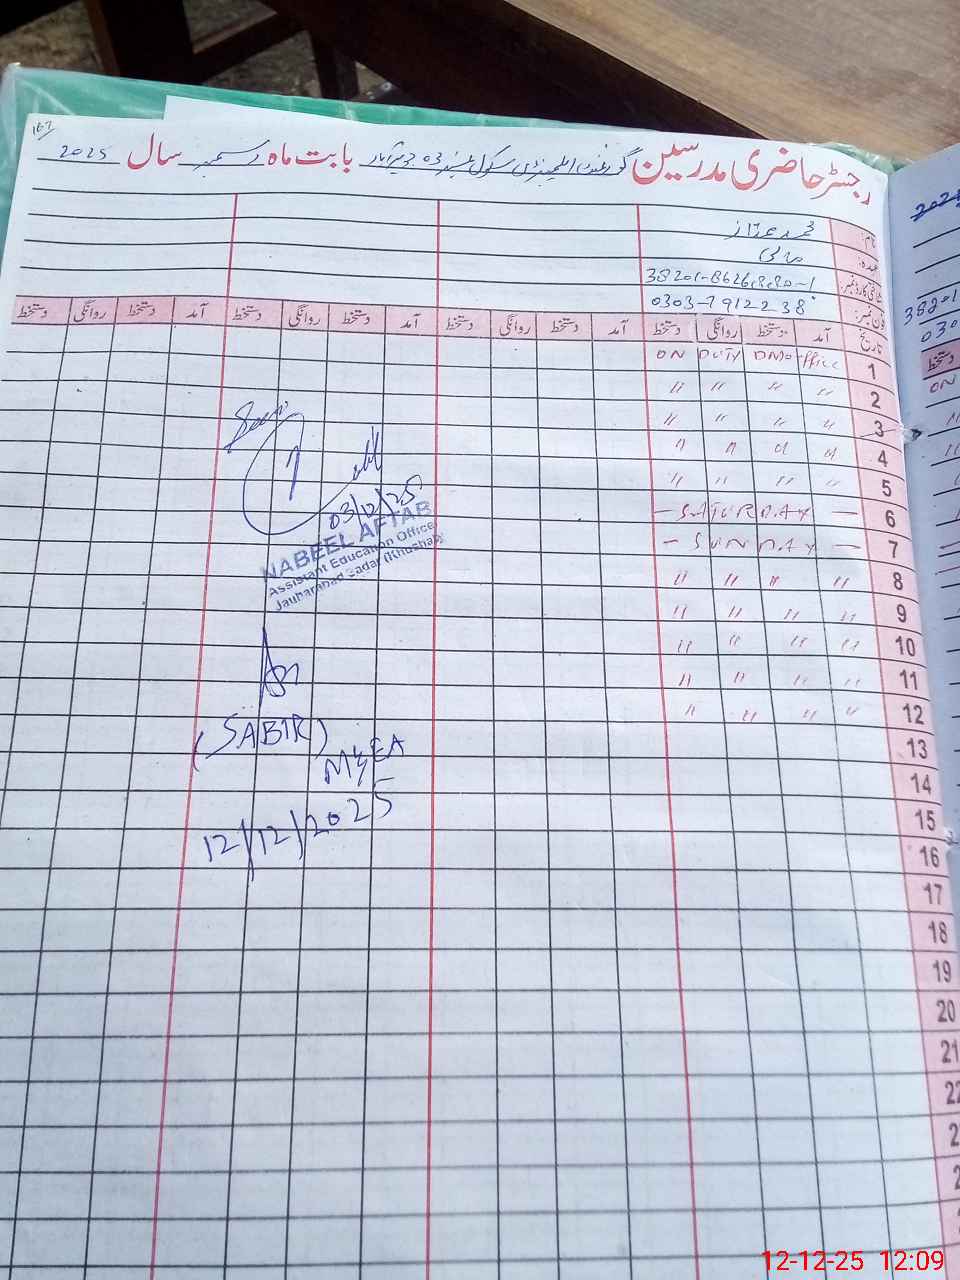 167
رجسٹر حاضری مدرسین گورنمنٹ ایلیمنٹری سکول نمبر 03 جوہرآباد بابت ماہ دسمبر سال 2025
نام:
عہدہ: مالی
شناختی کارڈ نمبر:
فون نمبر: 0303-7912238
تاریخ آمد دستخط روانگی دستخط آمد دستخط روانگی دستخط آمد دستخط روانگی دستخط آمد دستخط روانگی دستخط
1 ON DUTY DMO office
2 〃 〃 〃 〃
3 〃 〃 〃 〃
4 〃 〃 〃 〃
5 〃 〃 〃 〃
6 - SATURDAY -
7 - SUNDAY -
8 〃 〃 〃 〃
9 〃 〃 〃 〃
10 〃 〃 〃 〃
11 〃 〃 〃 〃
12 〃 〃 〃 〃
13
14
15
16
17
18
19
20
21
03/12/25
NABEEL AFTAB
Assistant Education Officer
Jauharabad Sadar (Khushab)
(SABIR)
MEA
12/12/2025
2024
38201
030
دستخط
ON
12-12-25 12:09